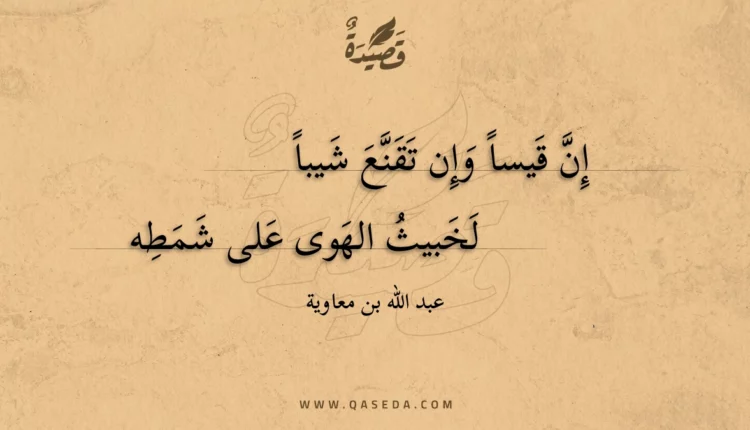 قَصِيْدَةٌ
إِنَّ قَيساً وَإِن تَقَنَّعَ شَيباً
لَخَبيثُ الهَوى عَلى شَمَطِه
عبد الله بن معاوية
WWW.QASEDA.COM